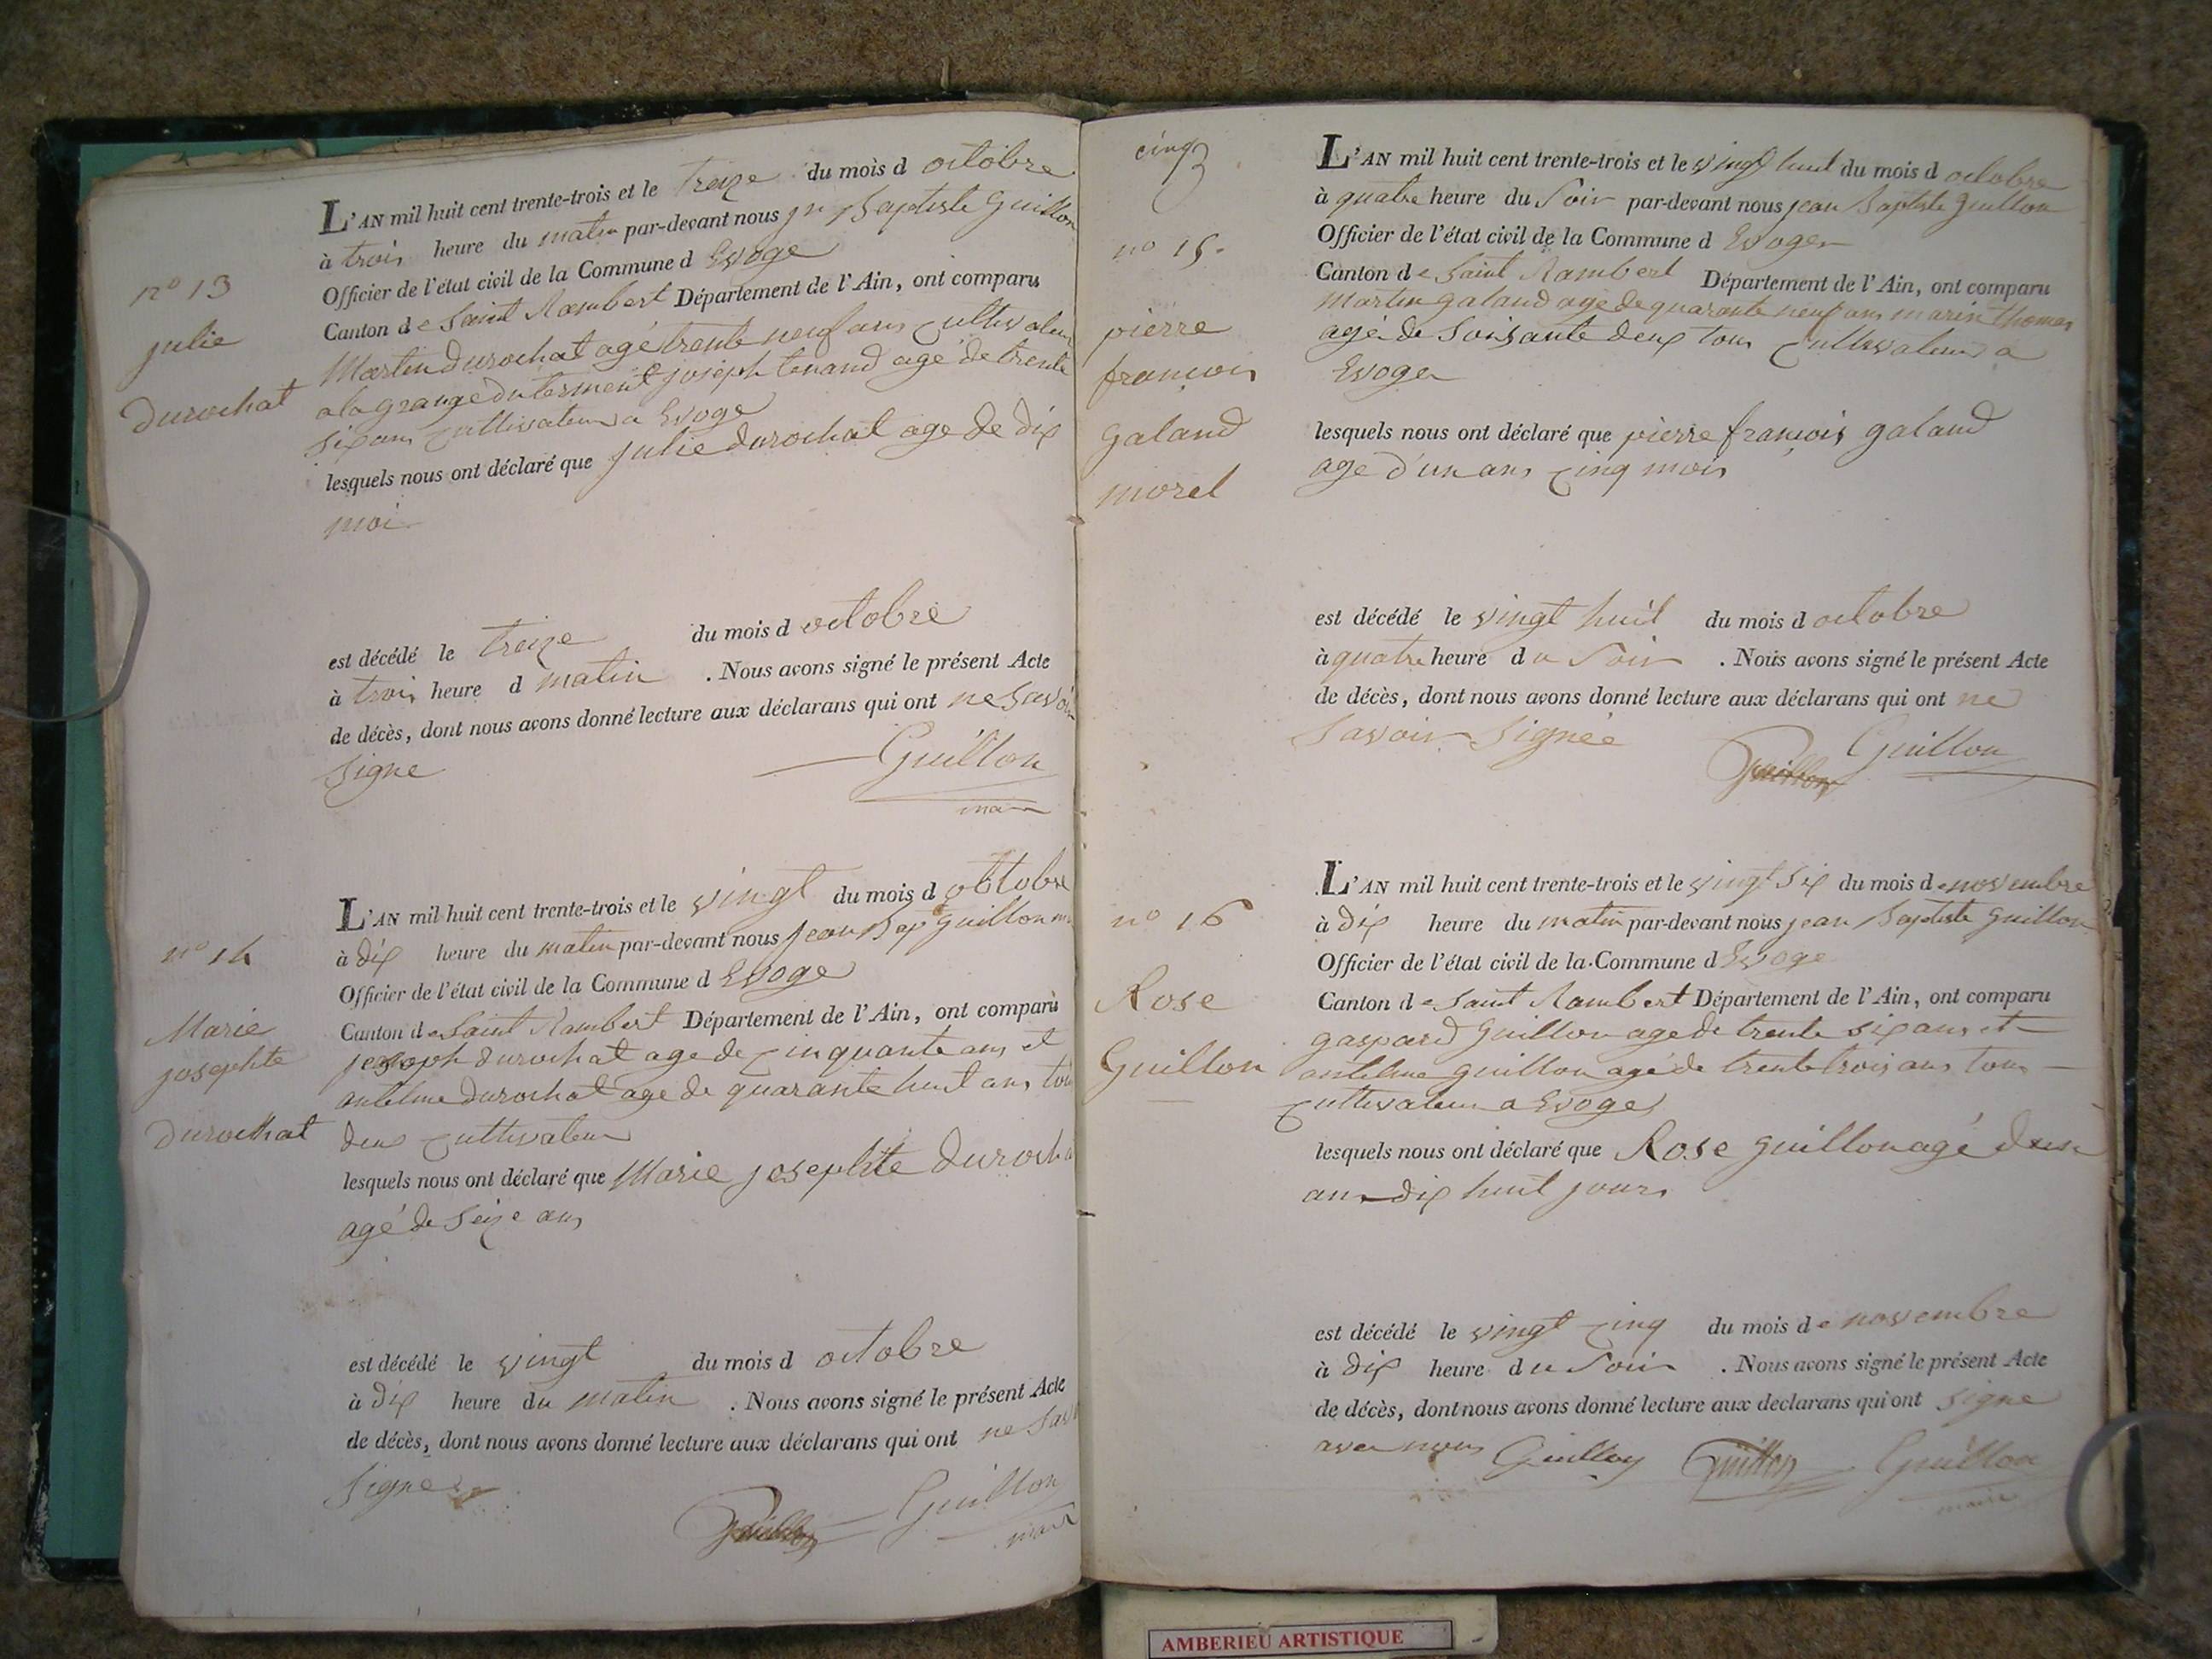 nº 13
julie
Durochat
L'AN mil huit cent trente-trois et le treize du mois d octobre
à trois heure du matin par-devant nous jn Baptiste Guillon
Officier de l'état civil de la Commune d Evoge
Canton de Saint Rambert Département de l'Ain, ont comparu
Martin Durochat agé trente neuf ans cultivateur
a la grange du terment joseph tenand agé de trente
six ans cultivateur a Evoge
lesquels nous ont déclaré que julie durochat age de dix
moi
est décédé le treize du mois d octobre
à trois heure d matin . Nous avons signé le présent Acte
de décès, dont nous avons donné lecture aux déclarans qui ont ne savoir
signe
Guillon
nº 14
Marie
josephte
Durochat
L'AN mil huit cent trente-trois et le vingt du mois d obtobre
à dix heure du matin par-devant nous jean Bap guillon
Officier de l'état civil de la Commune d Evoge
Canton de Saint Rambert Département de l'Ain, ont comparu
joseph durochat age de cinquante ans et
antelme durochat age de quarante huit ans tou
deux cultivateur
lesquels nous ont déclaré que Marie josephte Durocha
agé de seize ans
est décédé le vingt du mois d octobre
à dix heure du matin . Nous avons signé le présent Acte
de décès, dont nous avons donné lecture aux déclarans qui ont ne sav
signer
Guillon Guillon
maire
cinq
nº 15.
pierre
françois
galand
morel
L'AN mil huit cent trente-trois et le vingt huit du mois d octobre
à quatre heure du soir par-devant nous jean Baptiste guillon
Officier de l'état civil de la Commune d Evoges
Canton de Saint Rambert Département de l'Ain, ont comparu
Martin galand age de quarante neuf ans marin thomas
agé de soisante deux tous cultivateur a
Evoges
lesquels nous ont déclaré que pierre françois galand
age d'un ans cinq mois
est décédé le vingt huit du mois d octobre
à quatre heure du soir . Nous avons signé le présent Acte
de décès, dont nous avons donné lecture aux déclarans qui ont ne
savoir signée
Guillon Guillon
nº 16
Rose
Guillon
L'AN mil huit cent trente-trois et le vingt six du mois de novembre
à dix heure du matin par-devant nous jean Baptiste guillon
Officier de l'état civil de la Commune d Evoge
Canton de Saint Rambert Département de l'Ain, ont comparu
gaspard guillon age de trente six ans et
antelme guillon agé de trente trois ans tous
cultivateur a Evoges
lesquels nous ont déclaré que Rose guillon agé dun
ans dix huit jours
est décédé le vingt cinq du mois de novembre
à dix heure du soir . Nous avons signé le présent Acte
de décès, dont nous avons donné lecture aux declarans qui ont signe
avec nous Guillon Guillon Guillon
maire
AMBERIEU ARTISTIQUE